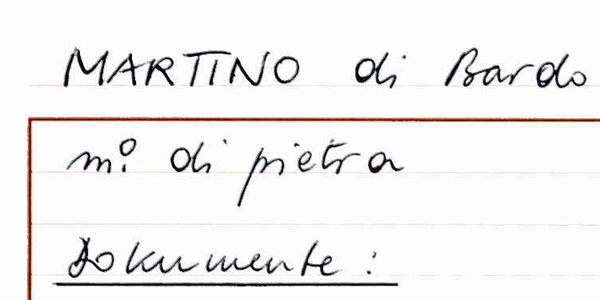 MARTINO di Bardo
m.º di pietra
Dokumente: